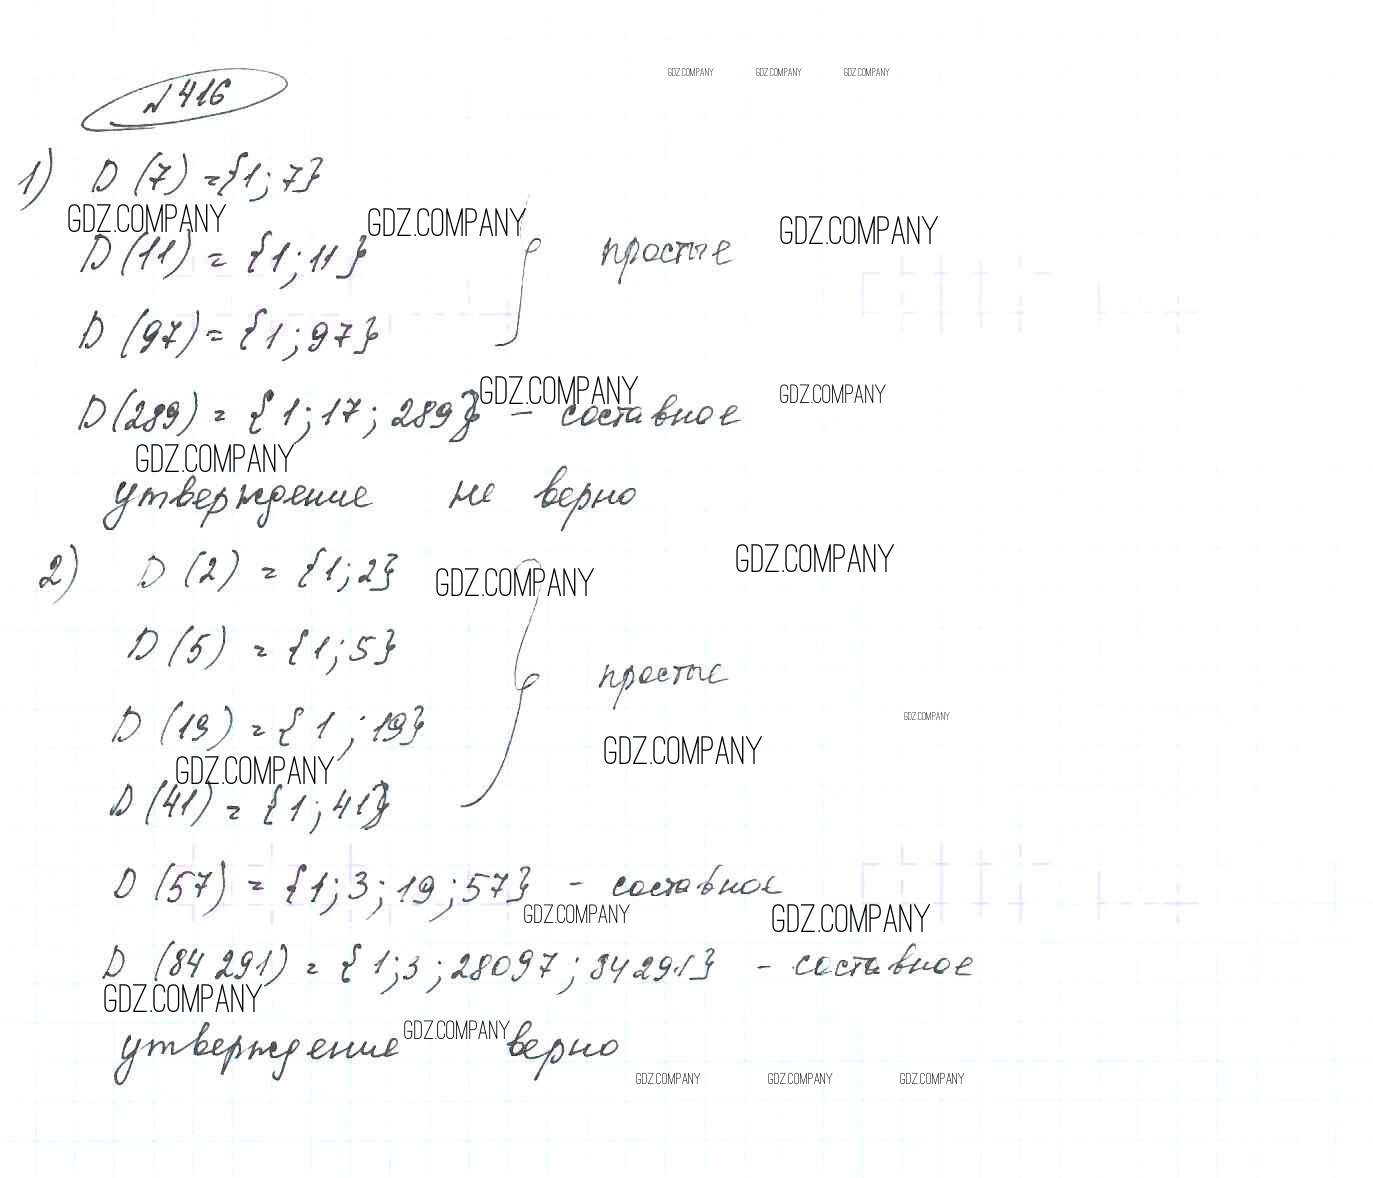 GDZ.COMPANY GDZ.COMPANY GDZ.COMPANY
№416
1) D (7) = {1; 7}
GDZ.COMPANY GDZ.COMPANY GDZ.COMPANY
D (11) = {1; 11} простые
D (97) = {1; 97}
GDZ.COMPANY GDZ.COMPANY
D (289) = {1; 17; 289} - составное
GDZ.COMPANY
утверждение не верно
GDZ.COMPANY
2) D (2) = {1; 2}
GDZ.COMPANY
D (5) = {1; 5}
простые
D (19) = {1; 19}
GDZ.COMPANY
GDZ.COMPANY
GDZ.COMPANY
D (41) = {1; 41}
D (57) = {1; 3; 19; 57} - составное
GDZ.COMPANY GDZ.COMPANY
D (84 291) = {1; 3; 28097; 84291} - составное
GDZ.COMPANY
GDZ.COMPANY
утверждение верно
GDZ.COMPANY GDZ.COMPANY GDZ.COMPANY